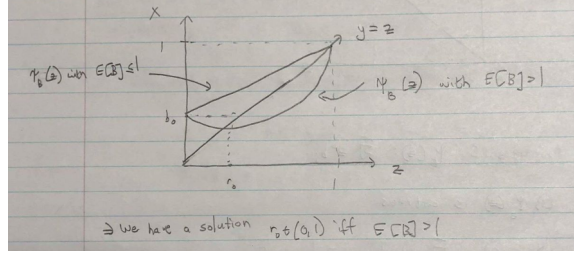 X
y = z
1
ψ_B(z) with E[B] ≤ 1
ψ_B(z) with E[B] > 1
b₀
z
r₀
1
⇒ We have a solution r₀ ∈ (0,1) iff E[B] > 1